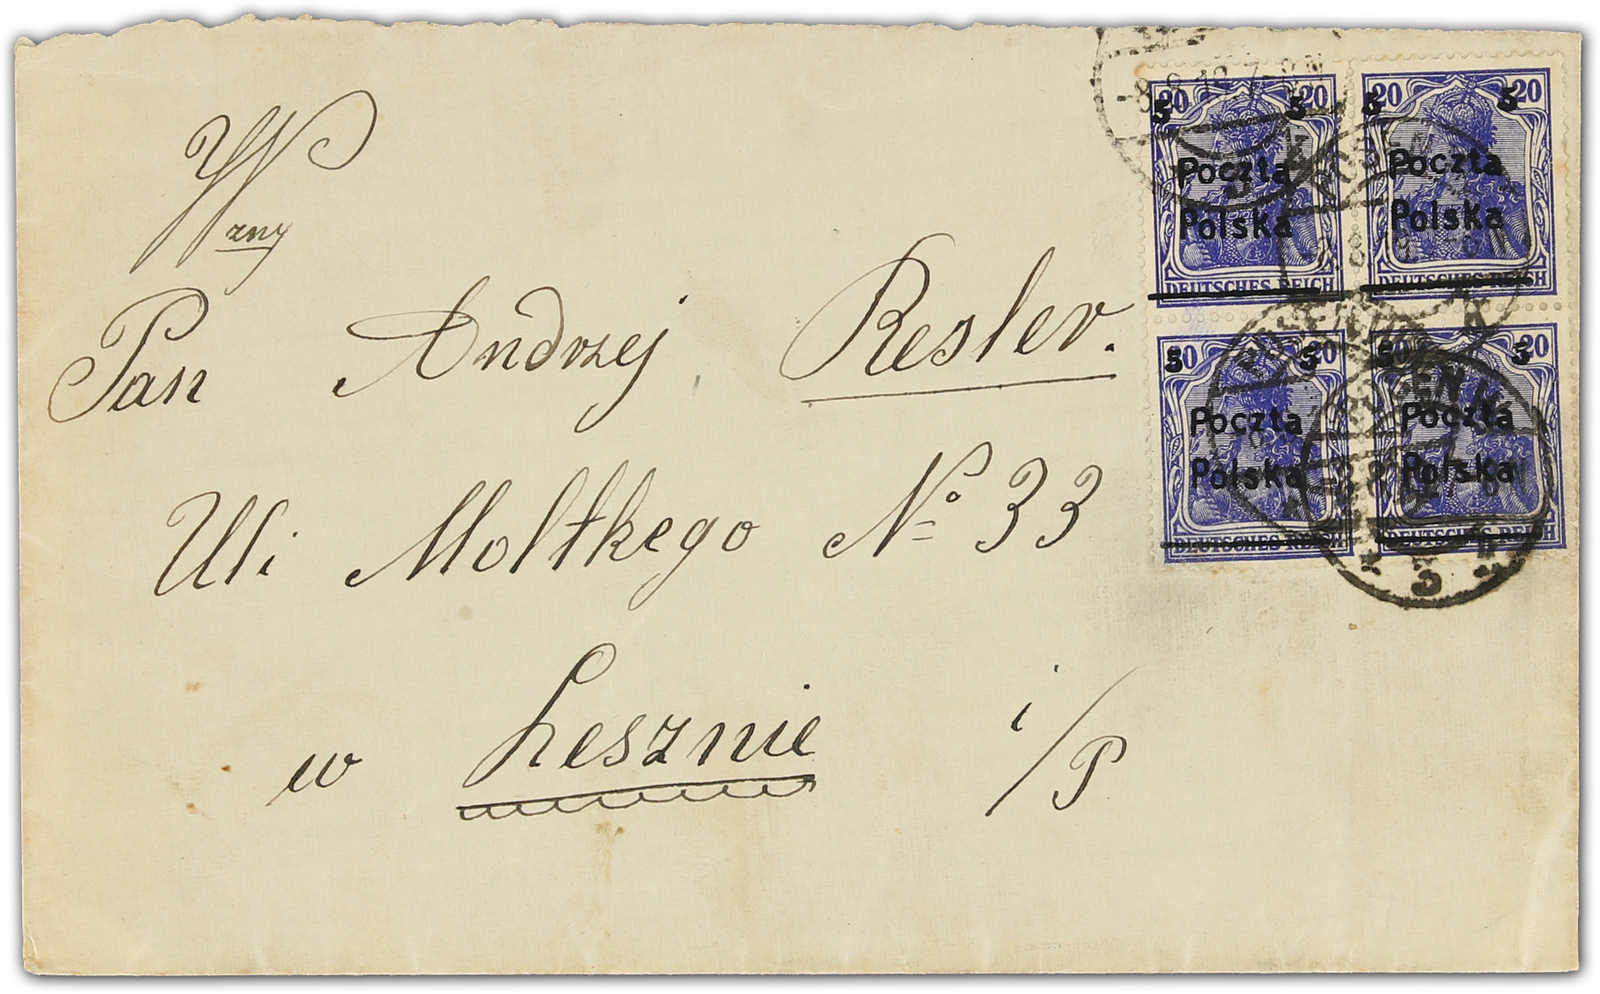 Wzny
Pan Andrzej Resler.
Uli Moltkego No 33
w Lesznie i/P
5 20 5 20
Poczta
Polska
DEUTSCHES REICH
5 20 5 20
Poczta
Polska
DEUTSCHES REICH
5 20 5 20
Poczta
Polska
DEUTSCHES REICH
5 20 5 20
Poczta
Polska
DEUTSCHES REICH
-8.8.19.7-8N
POSEN
3